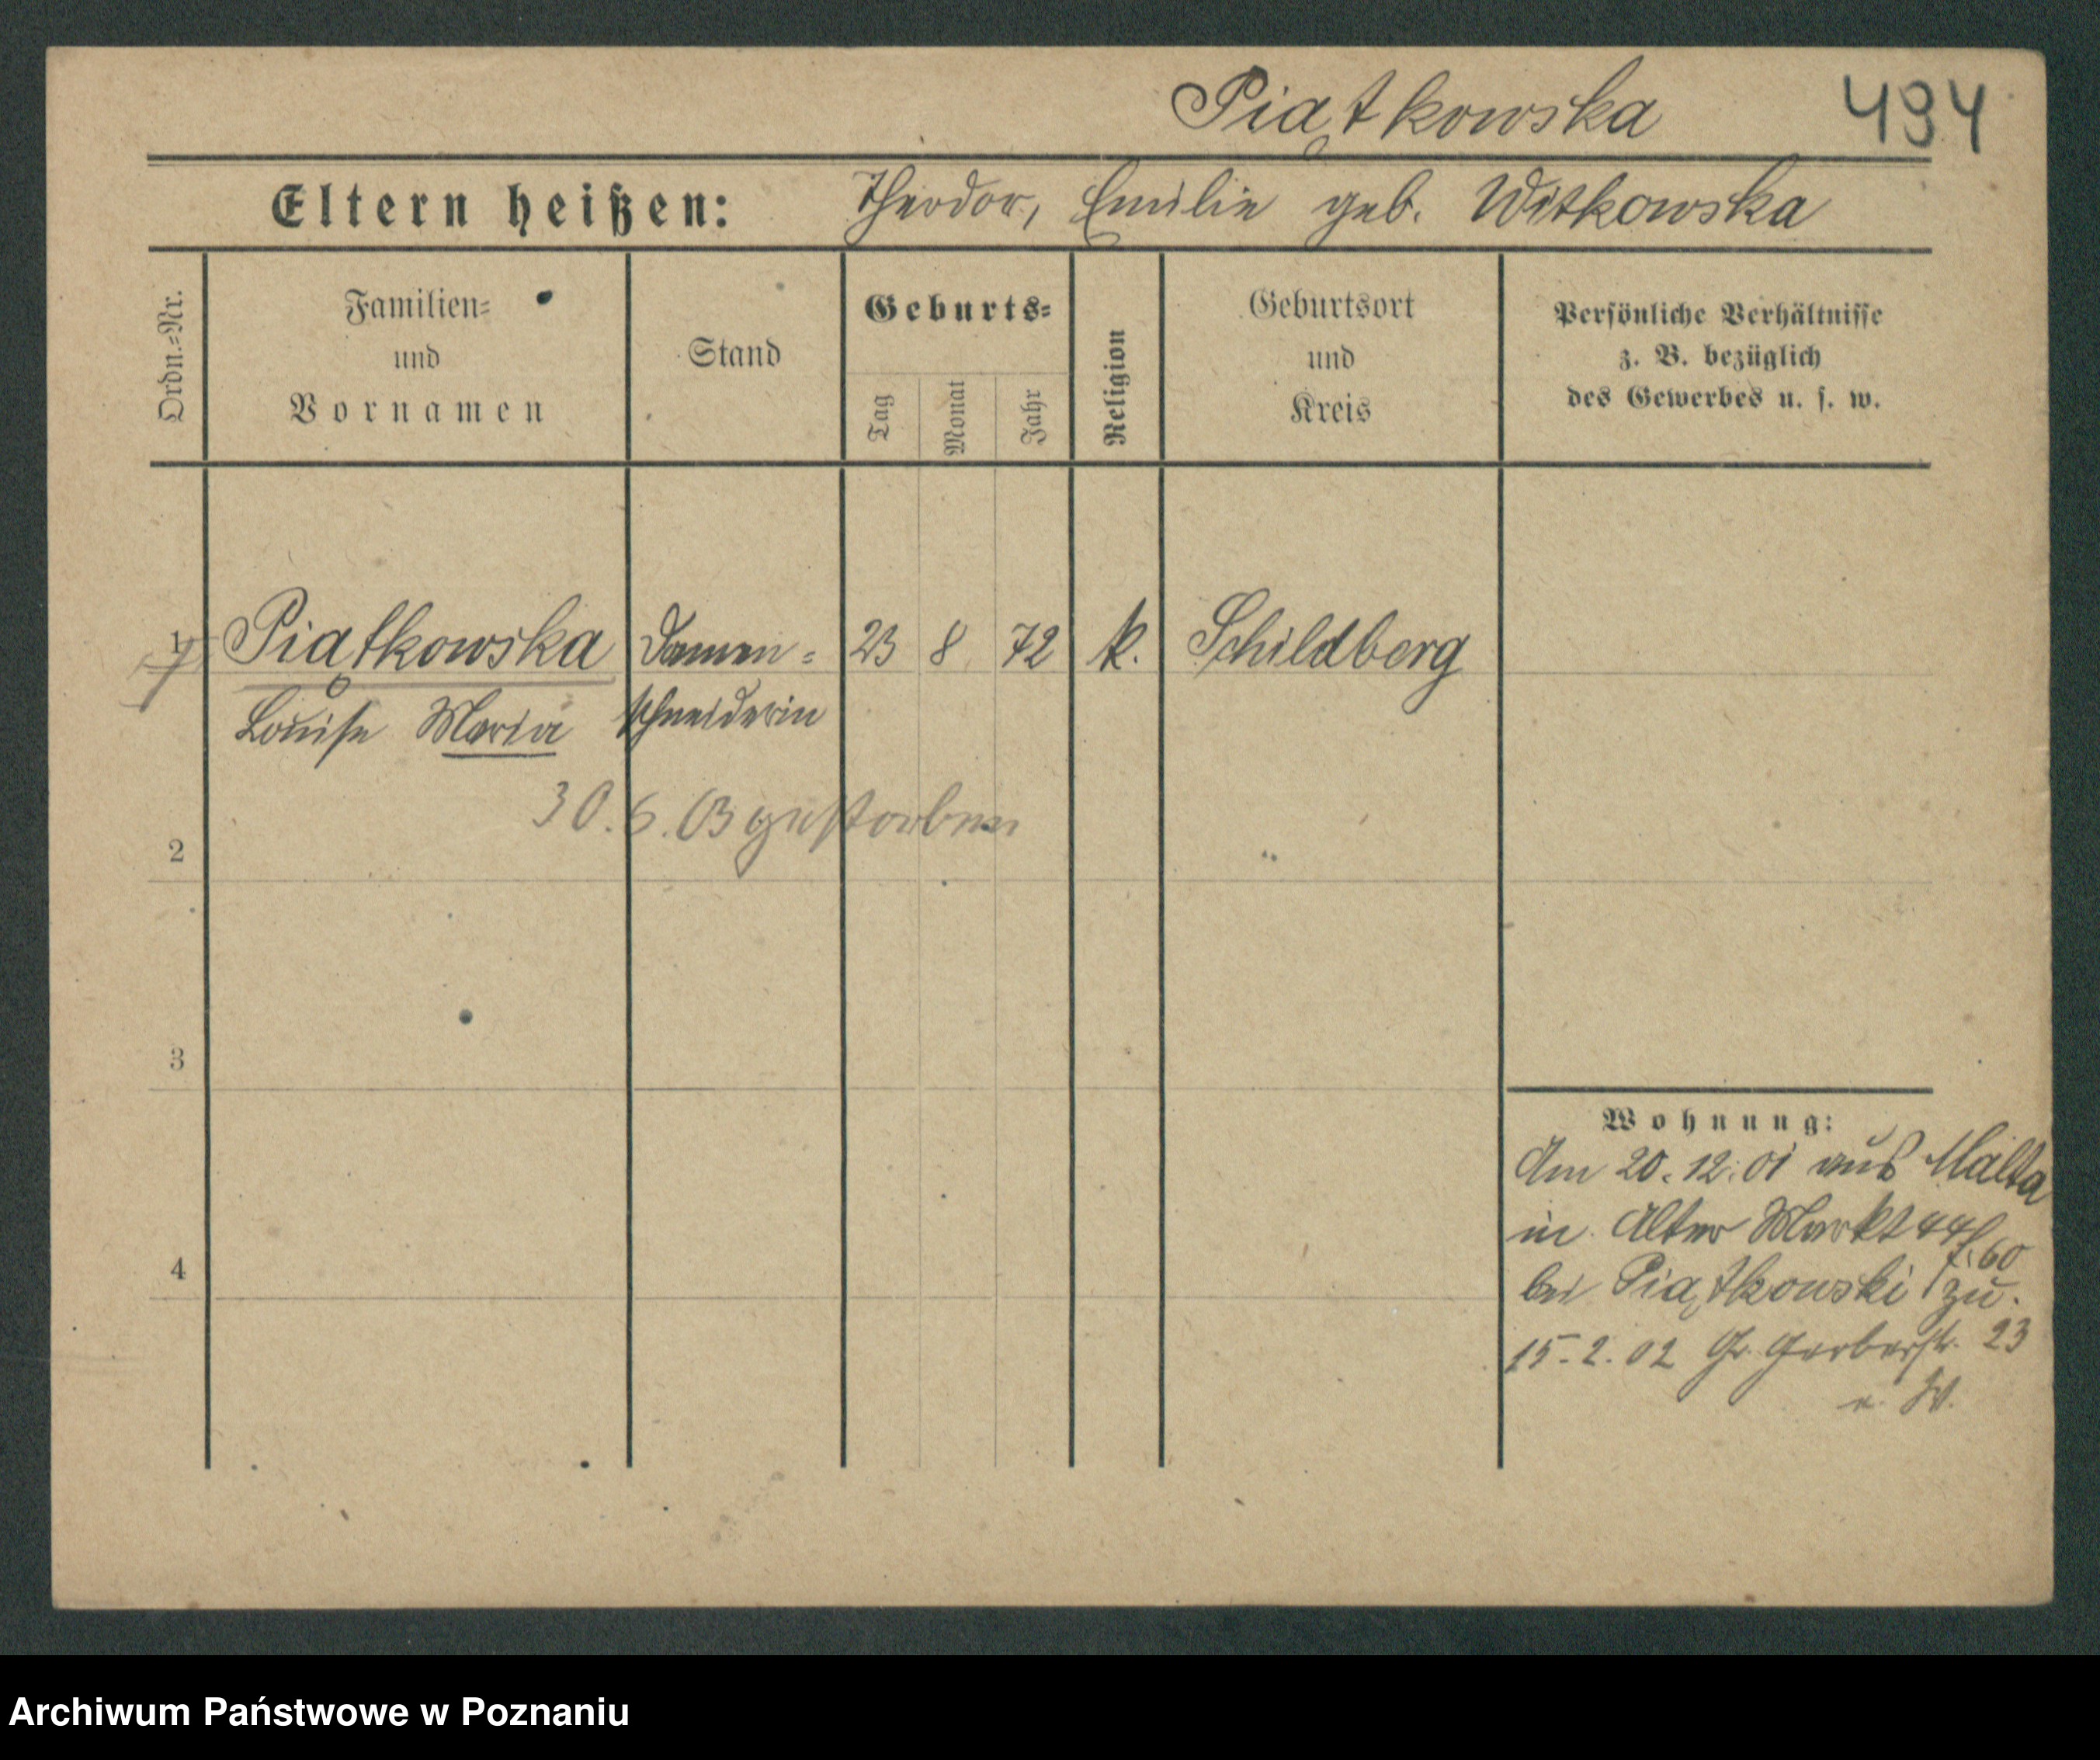 Piątkowska 494
Eltern heißen: Theodor, Emilie geb. Witkowska
Ordn.-Nr.
Familien-
und
Vornamen
Stand
Geburts-
Tag
Monat
Jahr
Religion
Geburtsort
und
Kreis
Persönliche Verhältnisse
z. B. bezüglich
des Gewerbes u. s. w.
1 Piątkowska Damen- 23 8 72 k. Schildberg
Louise Maria schneiderin
30.6.03 gestorben
2
3
4
Wohnung:
Am 20.12.01 aus Malta
in Alter Markt 44
7.60
bei Piątkowski zu.
15.2.02 Gr. Gerberstr. 23
Archiwum Państwowe w Poznaniu